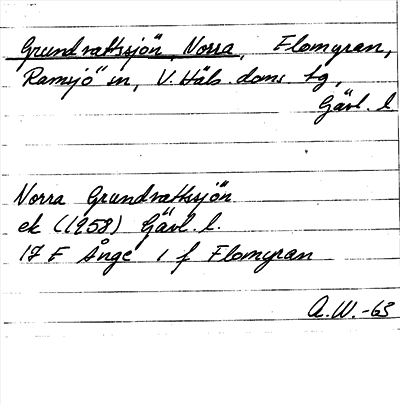 Grundvattssjön, Norra, Flomyran,
Ramsjö sn, V. Häls. doms tg,
Gävl. l
Norra Grundvattssjön
ek (1958) Gävl. l.
17 F Ånge 1 f Flomyran
A.W.-63